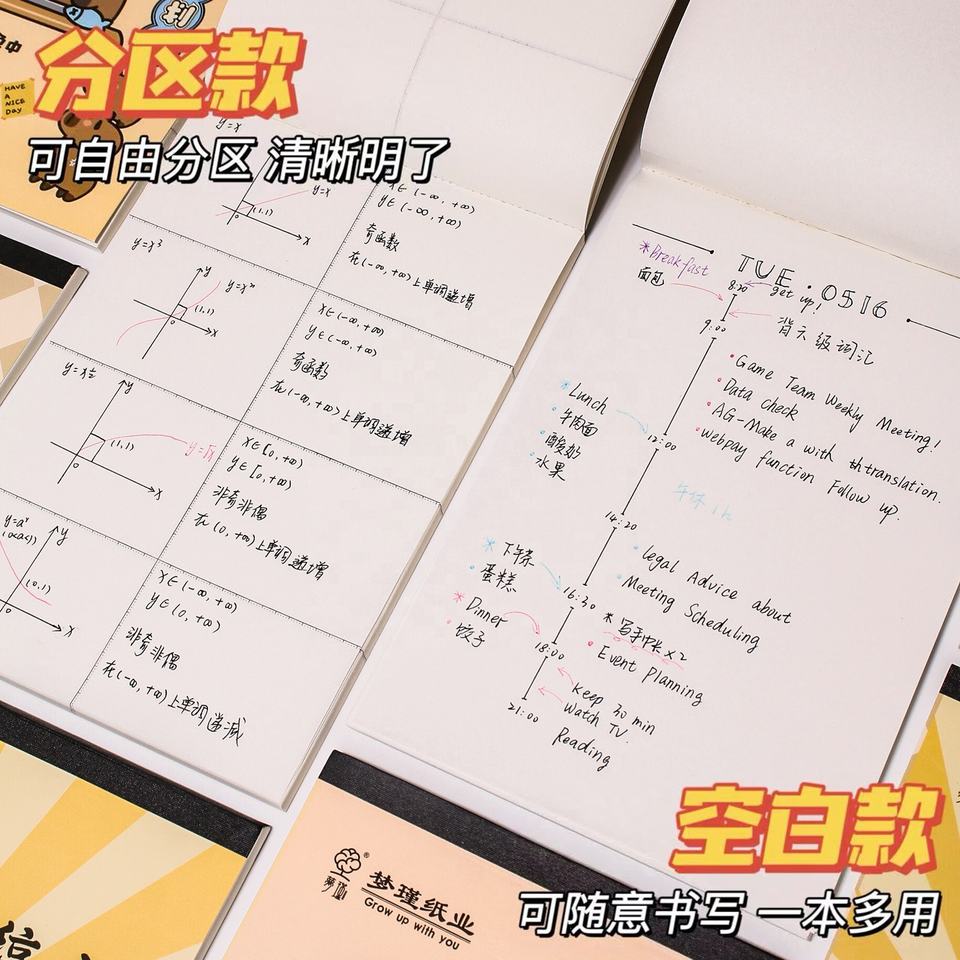 分区款
可自由分区 清晰明了
HAVE
A
NICE
Day
y=x
y=x
(1,1)
0
x
x∈(-∞,+∞)
y∈(-∞,+∞)
奇函数
在(-∞,+∞)上单调递增
y=x³
y
(1,1)
0
x
x∈(-∞,+∞)
y∈(-∞,+∞)
奇函数
在(-∞,+∞)上单调递增
y
(1,1)
y=√x
0
x
x∈[0,+∞)
y∈[0,+∞)
非奇非偶
在(0,+∞)上单调递增
y=aˣ
(0<a<1)
y
(0,1)
0
x
x∈(-∞,+∞)
y∈(0,+∞)
非奇非偶
在(-∞,+∞)上单调递减
TUE.0516
*Breakfast
面包
8:20
get up!
9:00
背六级词汇
Game Team Weekly Meeting!
Data check
AG-Make a with thtranslation.
webpay function Follow up.
*Lunch
牛肉面
酸奶
水果
12:00
午休1h
14:20
legal Advice about
Meeting Scheduling
*下午茶
蛋糕
16:30
*写手帐x2
*Dinner
饺子
18:00
Event Planning
Keep 30 min
Watch TV.
21:00
Reading
空白款
可随意书写 一本多用
梦瑾纸业
Grow up with you